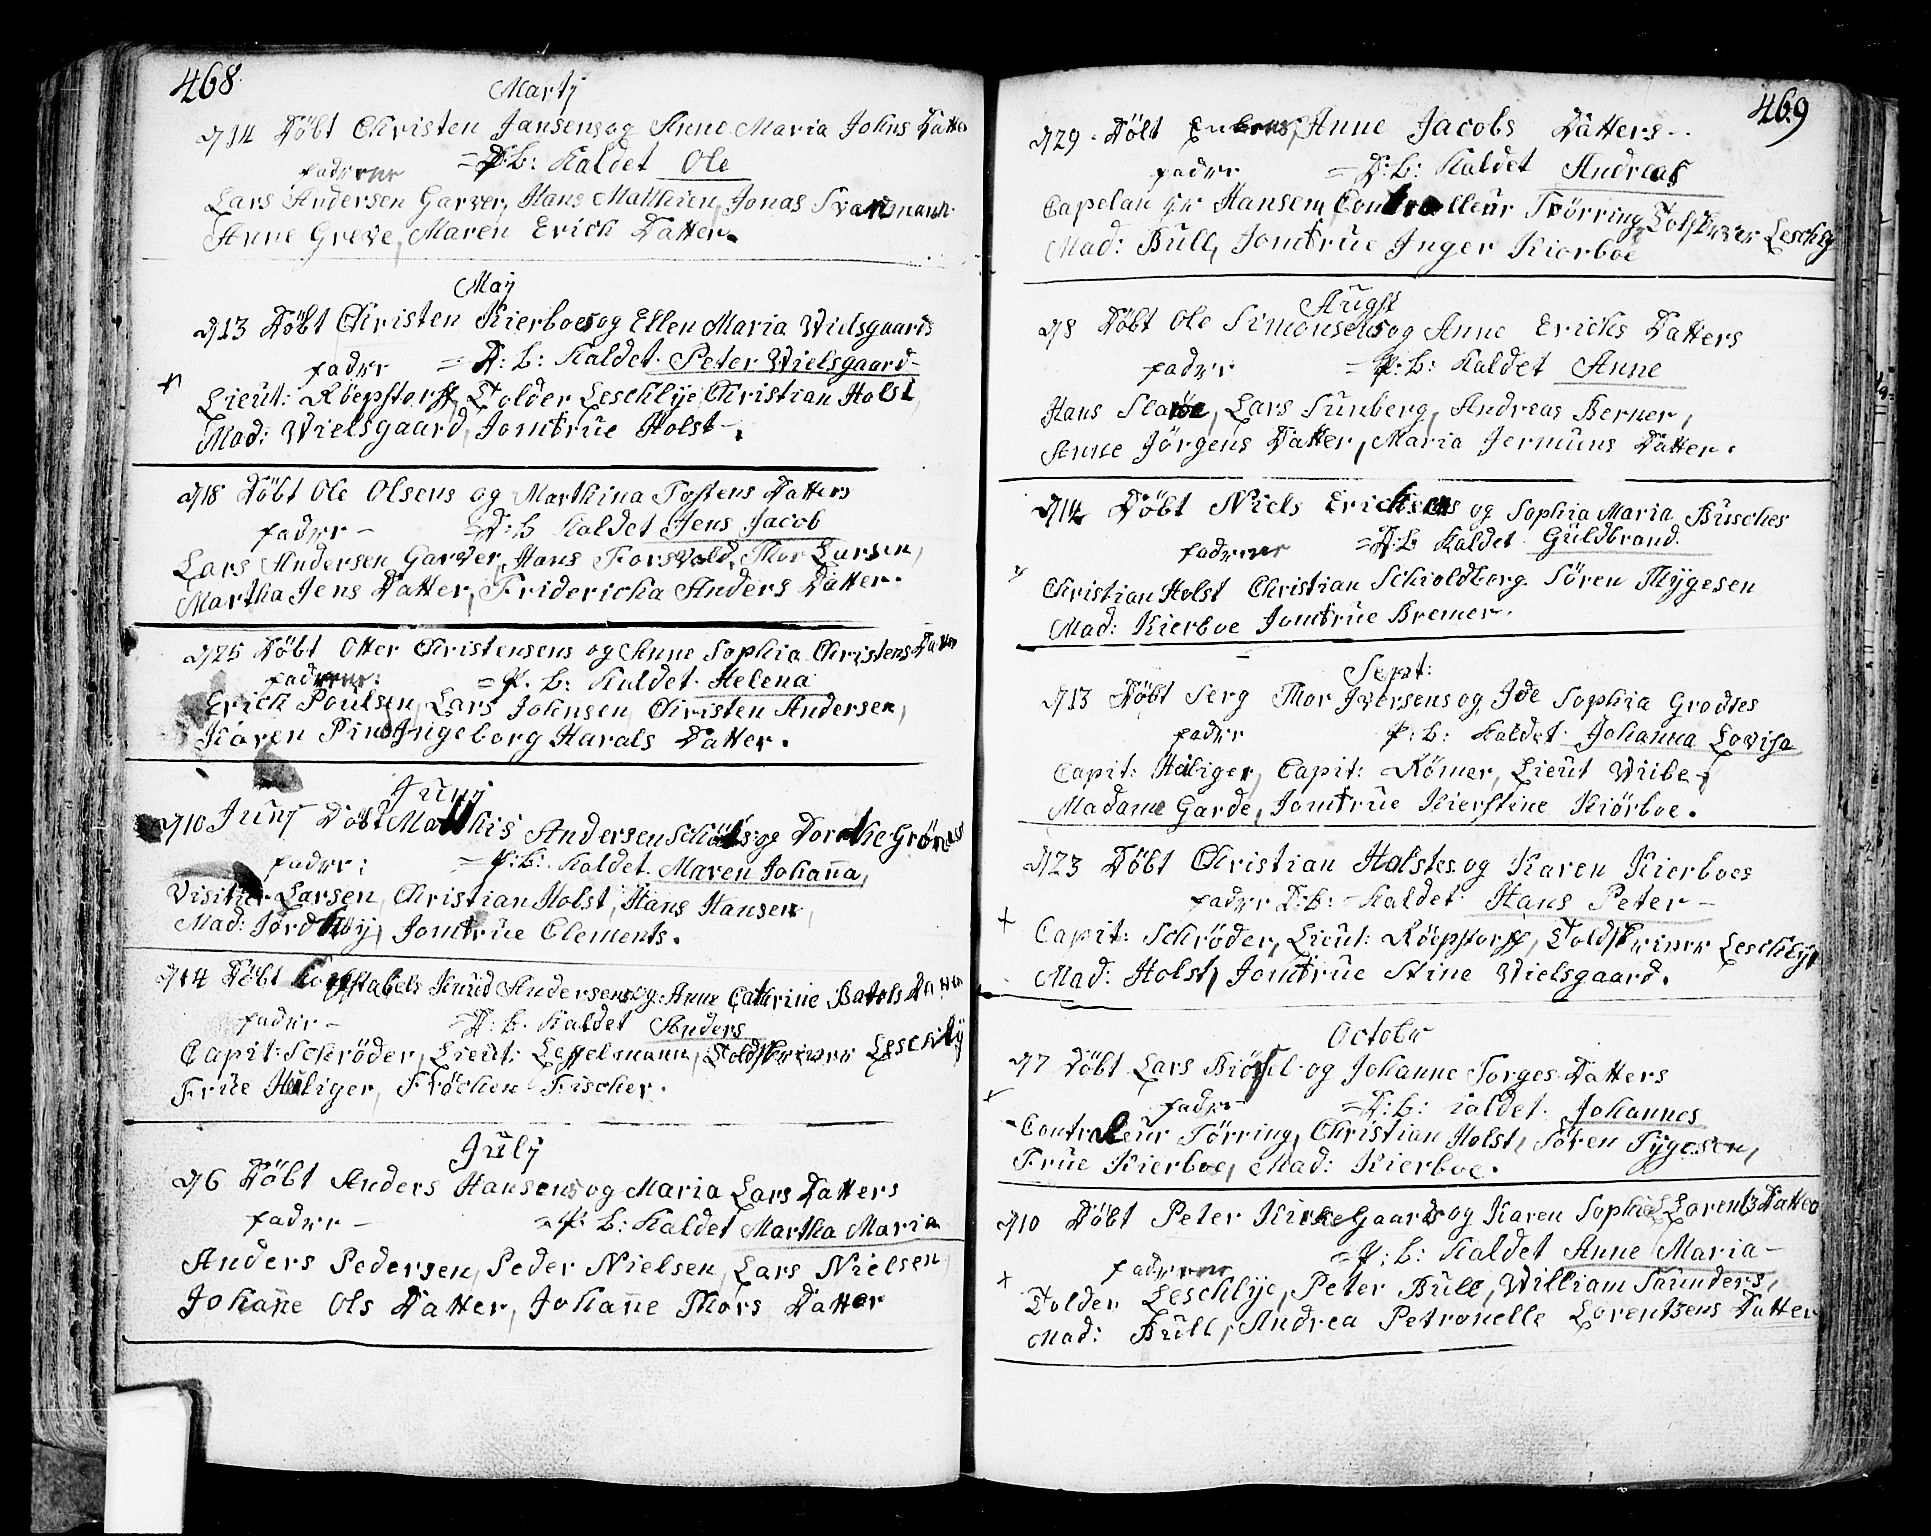 468.
Martj
D 14 Döbt Christen Jansens og Anne Maria Johns Datter
fadrene = D: B: Kaldet Ole
Lars Andersen Garver, Hans Matthien, Jonas Svartmann
Anne Greve, Maren Erich Datter.
Maij
D 13 Döbt Christen Kierboes og Ellen Maria Wielsgaards
fadrr = D: B: Kaldet Peter Wielsgaard
Lieut: Röepstorff, Tolder Leschlye, Christian Holst,
Mad: Wielsgaard, Jomfrue Holst
D 18 Döbt Ole Olsens og Marthina Tostens Datters
fadrr = D: B Kaldet Jens Jacob
Lars Andersen Garver, Hans Forsvold, Thor Larsen,
Martha Jens Datter, Fridericha Anders Datter.
D 25 Döbt Otter Christensens og Anne Sophia Christens Datter
fadrene: = P. B: Kaldet Helena
Erich Poulsen, Lars Johnsen, Christen Andersen,
Karen Pind, Ingeborg Harals Datter.
Junij
D 10 Junij Döbt Matthis Andersen og Dorothe Gröns
fadrr: = P: B: Kaldet Maren Johanna,
Visitær Larsen, Christian Holst, Hans Hansen,
Mad: Jordhöy, Jomfrue Clements.
D 14 Döbt Konstabels Knud Andersens og Anne Cathrine Batols Datter
fadrr = D: B. Kaldet Anders
Capit: Schröder, Lieut: Lesselmann, Toldskriver Leschlÿ
Frue Heiliger, Fröchen Fischer.
Julij
D 6 Döbt Anders Hansens og Maria Lars Datters
fadrr = P: B: Kaldet Martha Maria
Anders Pedersen, Peder Nielsen, Lars Nielsen,
Johanne Ols Datter, Johanne Thors Datter
469
D 29. Döbt Anne Jacobs Datters
fadrr = D: B: Kaldet Andreas
Capelan Hr Hansen, Controlleur Törring, Tolskriver Leschly
Mad: Bull, Jomfrue Inger Kierboe
Augst
D 8 Döbt Ole Simonsens og Anne Erichs Datters
fadrr = P: B: Kaldet Anne
Hans Slaröe, Lars Sunberg, Andreas Berner,
Anne Jörgens Datter, Maria Jermuns Datter.
D 14 Döbt Niels Erichsens og Sophia Maria Busches
fadrene = D: B Kaldet Guldbrand
Christian Holst Christian Schioldborg Sören Thygesen
Mad: Kierboe Jomfrue Bremer.
Sept:
D 13 Döbt Serg Thor Iversens og Ide Sophia Grodtes
fadrr P: B: Kaldet Johanna Lovisa
Capit: Heiliger, Capit: Römer, Lieut Wiibe
Madame Garde, Jomfrue Kierstine Kiörboe.
D 23 Döbt Christian Holstes og Karen Kierboes
fadrr D: B: Kaldet Hans Peter
Capit: Schröder, Lieut: Röepstorff, Toldskriver Leschlye
Mad: Holst, Jomfrue Stine Wielsgaard.
Octobr
D 7 Döbt Lars og Johanne Torges Datters
fadrr = D: B: Kaldet Johannes
Controleur Törring, Christian Holst, Sören Tygesen,
Frue Kierboe, Mad: Kierboe.
D 10 Döbt Peter Kirkegaards og Karen Sophie Lorentz Datter
fadrene = P: B: Kaldet Anne Maria
Tolder Leschlye, Peter Bull, William Saunders,
Mad: Bull, Andrea Petronelle Lorentzens Datter